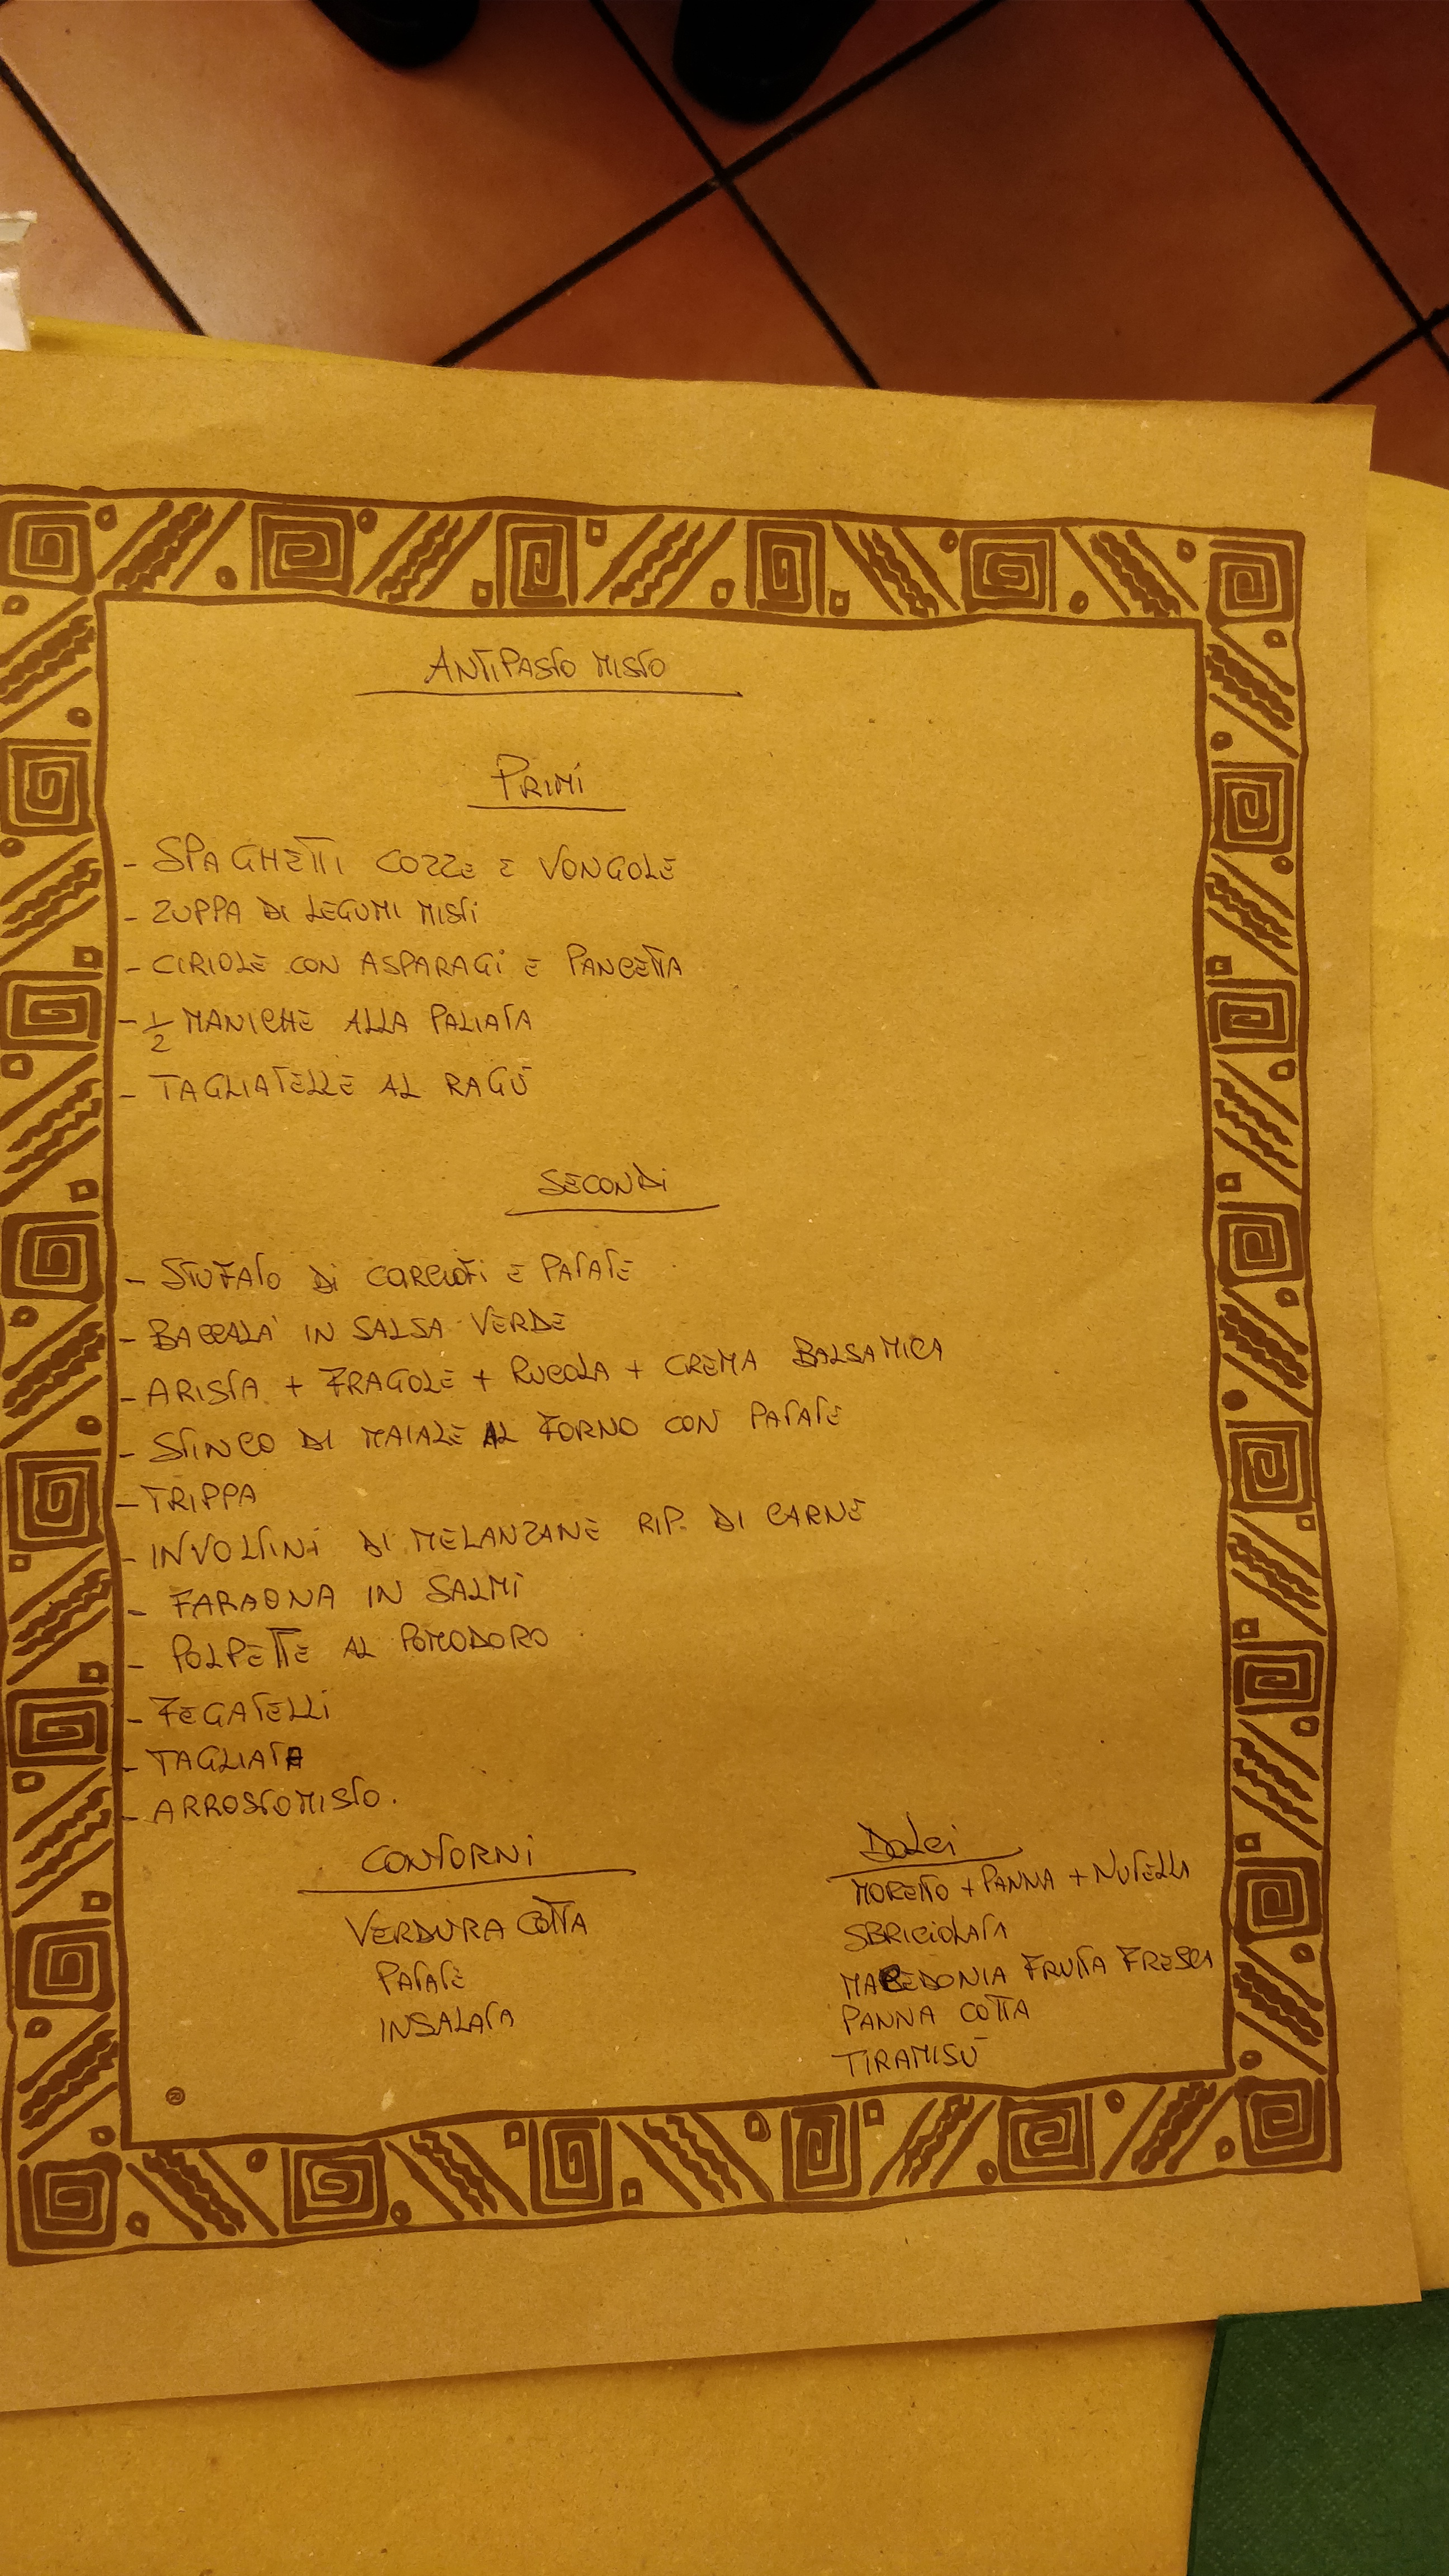 ANTIPASTO MISTO
PRIMI
- SPAGHETTI COZZE E VONGOLE
- ZUPPA DI LEGUMI MISTI
- CIRIOLE CON ASPARAGI E PANCETTA
- 1/2 MANICHE ALLA PALIATA
- TAGLIATELLE AL RAGÙ
SECONDI
- STUFATO DI CARCIOFI E PATATE
- BACCALA' IN SALSA VERDE
- ARISTA + FRAGOLE + RUCOLA + CREMA BALSAMICA
- STINCO DI MAIALE AL FORNO CON PATATE
- TRIPPA
- INVOLTINI DI MELANZANE RIP. DI CARNE
- FARAONA IN SALMÌ
- POLPETTE AL POMODORO
- FEGATELLI
- TAGLIATA
- ARROSTOMISTO.
CONTORNI
VERDURA COTTA
PATATE
INSALATA
DOLCI
MORETTO + PANNA + NUTELLA
SBRICIOLATA
MACEDONIA FRUTTA FRESCA
PANNA COTTA
TIRAMISÙ
®